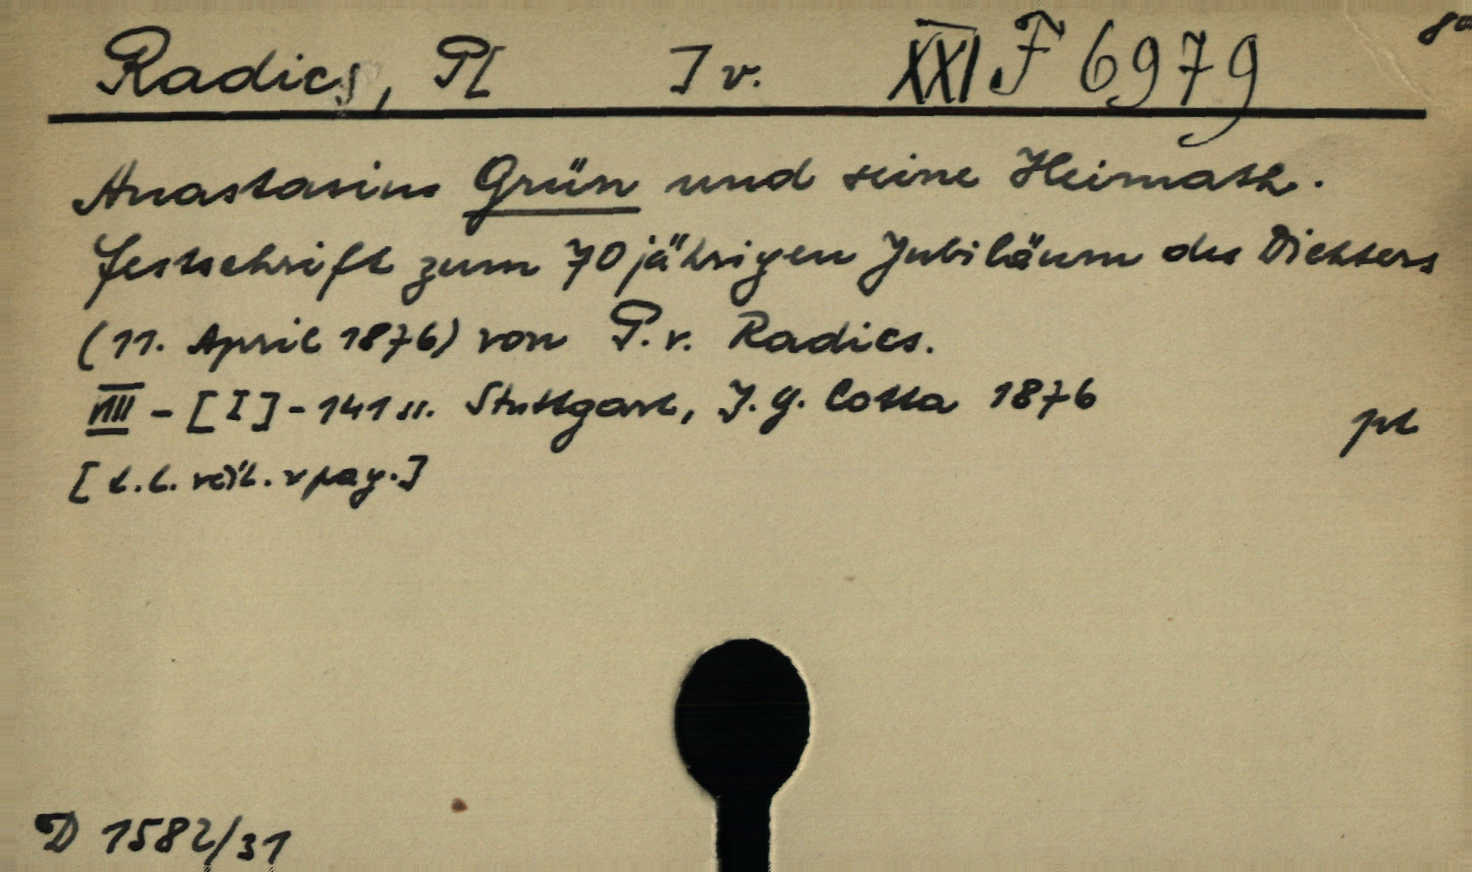 Radics, P[ ] v. XXI F 6979 8°
Anastasius Grün und seine Heimath.
Festschrift zum 70jährigen Jubiläum des Dichters
(11. April 1876) von P. v. Radics.
VIII - [I] - 141 s. Stuttgart, J. G. Cotta 1876
pł
[t. t. réžt. v pag.]
D 1582/31